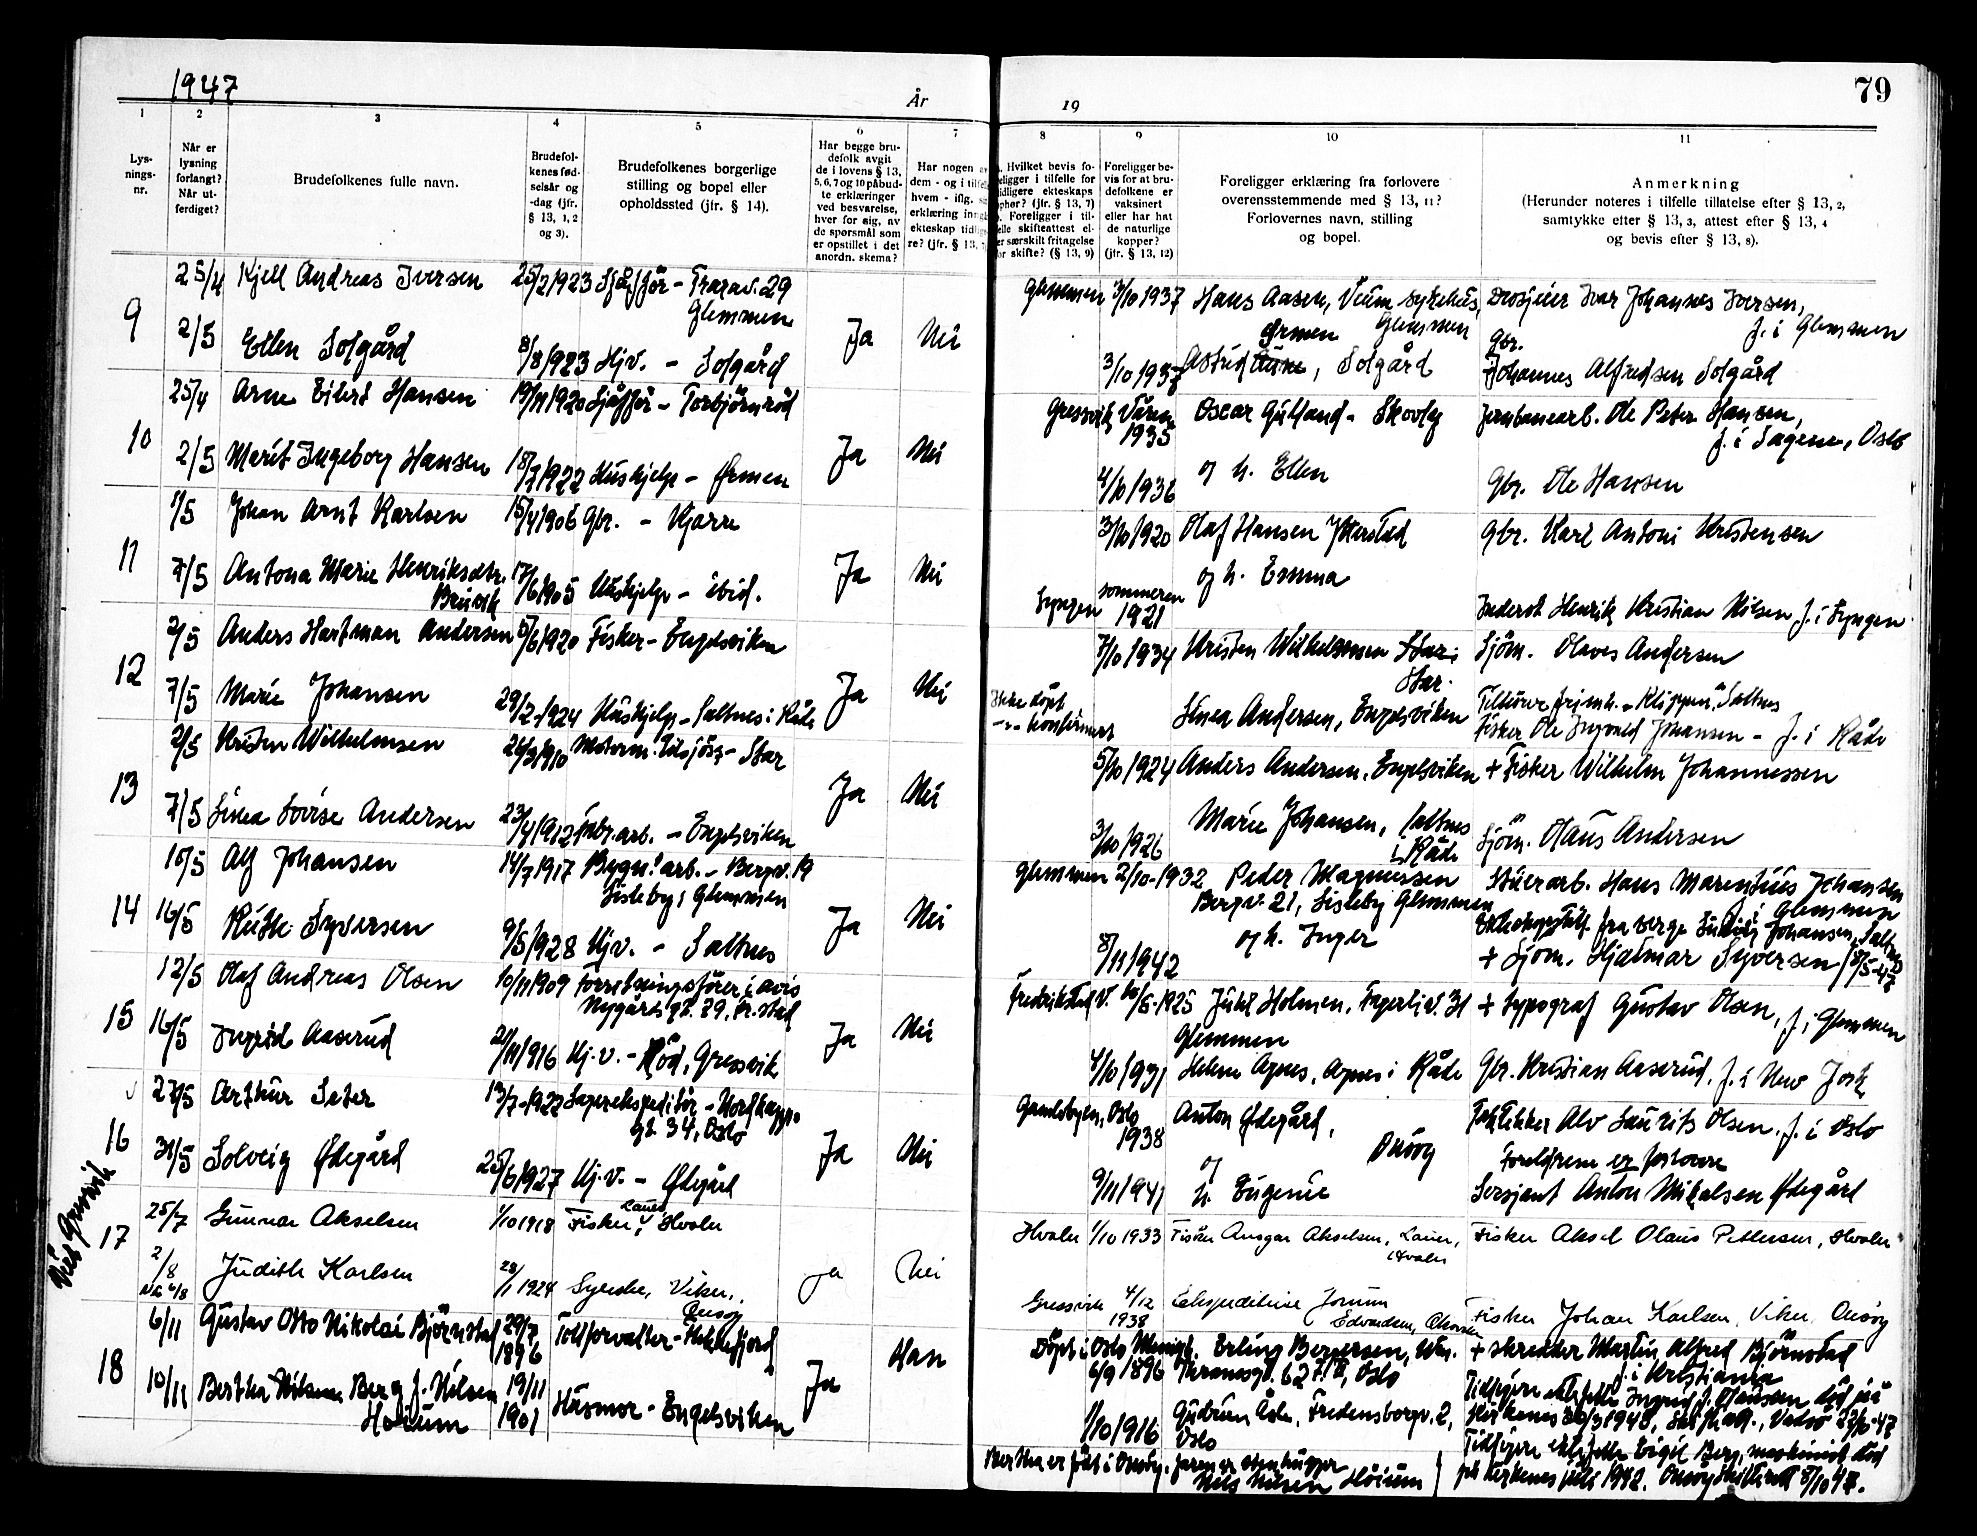 1947
År
19
79
1
2
3
4
5
6
7
8
9
10
11
Lys-
nings-
nr.
Når er
lysning
forlangt?
Når ut-
ferdiget?
Brudefolkenes fulle navn.
Brudefol-
kenes fød-
selsår og
-dag (jfr.
§ 13, 1, 2
og 3).
Brudefolkenes borgerlige
stilling og bopel eller
opholdssted (jfr. § 14).
Har begge bru-
defolk avgit
de i lovens § 13,
5, 6, 7 og 10 påbud-
te erklæringer
ved besvarelse,
hver for sig, av
de spørsmål som
er opstillet i det
anordn. skema?
Har nogen av
dem - og i tilfelle
hvem - iflg.
erklæring inng
ekteskap tidlig
re? (jfr. § 13,
Hvilket bevis fo-
religger i tilfelle for
tidligere ekteskaps
opher? (jfr. § 13, 7)
Foreligger i til-
felle skifteattest el-
er særskilt fritagelse
for skifte? (§ 13, 9)
Foreligger be-
vis for at bru-
defolkene er
vaksinert
eller har hat
de naturlige
kopper?
(jfr. § 13, 12)
Foreligger erklæring fra forlovere
overensstemmende med § 13, 11?
Forlovernes navn, stilling
og bopel.
Anmerkning
(Herunder noteres i tilfelle tillatelse efter § 13, 2,
samtykke efter § 13, 3, attest efter § 13, 4
og bevis efter § 13, 8).
9
25/4 Kjell Andreas Iversen 25/2 1923 Sjåffør - Trarav. 29
Glemmen
2/5 Ellen Solgård 8/8 1923 Hjv. - Solgård
Ja Nei
Glemmen 3/10 1937 Hans Aasen, Veum sykehus, Glemmen
Drosjeeier Ivar Johannes Iversen,
f. i Glemmen
3/10 1937 Astrid Ørmen, Solgård
Gbr. Johannes Alfredsen Solgård
10
25/4 Arne Eilert Hansen 19/11 1920 Sjåffør - Torbjørnrød
2/5 Marit Ingeborg Hansen 18/7 1922 Hushjelp - Ørmen
Ja Nei
Gressvik Våren
1935
Oscar Gulland - Skovly
Jernbanearb. Ole Peter Hansen,
f. i Sagene, Oslo
4/10 1936 og h. Ellen
Gbr. Ole Hansen
11
1/5 Johan Arnt Karlsen 15/4 1906 Gbr. - Kjære
7/5 Antona Marie Henriksdtr. 17/6 1905 Hushjelp - ibid.
Ja Nei
3/10 1920 Olaf Hansen
Gbr. Karl Antoni Kristensen
Lyngen sommeren
1921
og h. Emma
Inderst Henrik Kristian Nilsen f. i Lyngen
12
2/5 Anders Hartman Andersen 5/6 1920 Fisker - Engelsviken
7/5 Marie Johansen 29/2 1924 Hushjelp - Saltnes i Råde
Ja Nei
7/10 1934 Kristen Wilhelmsen
Star.
Sjøm. Olaves Andersen
Ikke døpt
-"- konfirmert
Linea Andersen, Engelsviken
Tilhører frimh. "Klippen", Saltnes
Fisker Ole Ingvald Johansen - f. i Råde
13
2/5 Kristen Wilhelmsen 26/3 1910 Motorm. tilsjøss - Star
7/5 Linea Lovise Andersen 23/4 1912 Fabr. arb. - Engelsviken
Ja Nei
5/10 1924 Anders Andersen, Engelsviken
+ Fisker Wilhelm Johannessen
3/10 1926 Marie Johansen, Saltnes
i Råde
Sjøm. Olaus Andersen
14
10/5 Alf Johansen 14/7 1917 Bygn. arb. - Bergv. 19
Lisleby, Glemmen
16/5 Ruth Syversen 9/5 1928 Hjv. - Saltnes
Ja Nei
Glemmen 2/10 - 1932 Peder Magnussen
Bergv. 21, Lisleby Glemmen
Stuerarb. Hans Marentius Johansen
f. i Glemmen
8/11 1942 og h. Inger
+ Sjøm. Hjalmar Syversen
15
12/5 Olaf Andreas Olsen 10/11 1909 Forretningsfører i avis
Nygårdsgt. 29, Fr.stad
16/5 Ingrid Aaserud 21/11 1916 Hj.v. - Rød, Gressvik
Ja Nei
Fredrikstad V. 10/5 - 1925 Juhl Holmen, Fagerliv. 31
Glemmen
+ typograf Gustav Olsen, f. i Glemmen
4/10 1931 Helene Agnes, Agnes i Råde
Gbr. Kristian Aaserud, f. i New York
16
27/5 Arthur Sater 13/7 - 1922 Lagerekspeditør - Nordkapp-
gt. 34, Oslo
31/5 Solveig Ødegård 25/6 1927 Hj.v. - Ødegård
Ja Nei
Gamlebyen, Oslo
1938
Anton Ødegård,
Onsøy
Alv Laurits Olsen, f. i Oslo
Foreldrene er forlovere
9/11 1941 og
h. Eugenie
Sersjant Anton Mikalsen Ødegård
Viet Gressvik
17
25/7 Gunnar Akselsen 1/10 1918 Fisker, Lauer, Hvaler
2/8 Judith Karlsen 28/1 1924 Syerske, Viker,
Onsøy
Ja Nei
Hvaler 1/10 1933 Fisker Ansgar Akselsen, Lauer,
Hvaler
Fisker Aksel Olaus Pettersen, Hvaler
Gressvik 4/12
1938
Ekspeditrise Jorunn
Edvardsen,
Fisker Johan Karlsen, Viker, Onsøy
18
6/11 Gustav Otto Nikolai Bjørnstad 29/7
1896
Tollforvalter - Hokksfjord
10/11 Bertha Nilsine Berg f. Nilsen
Høium
19/11
1901
Husmor - Engelsviken
Ja Han
Døpt i Oslo
6/9 1896
Erling Bergersen,
Thranesgt. 62, Oslo
+ skredder Martin Alfred Bjørnstad
f. i Kristiania
1/10 1916 Gudrun Åsle, Fredensborgv. 2,
Oslo
Tidligere ektefelle Ingrid f. Hanssen død på
Kirkenes 1940, Skifteatt., Vadsø 22/10-47
Tidligere ektefelle Eigil Berg, maskinist død
på Kirkenes juli 1942. Onsøy Skifterett 8/10 47.
Bertha er født i Onsøy. Faren er stenhugger
Nils Nilsen Høium